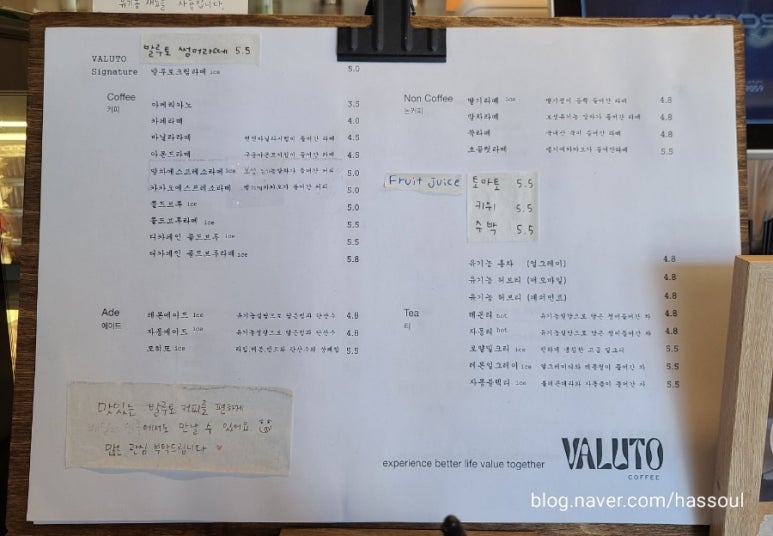 유기농 재료를 사용합니다.
VALUTO 발루토 썸머라떼 5.5
Signature 발루토크림라떼 ice 5.0
Coffee
커피
아메리카노 3.5
카페라떼 4.0
바닐라라떼 천연바닐라시럽이 들어간 라떼 4.5
아몬드라떼 4.5
말차에스프레소라떼 ice 5.0
카카오에스프레소라떼 5.0
콜드브루 ice 5.0
콜드브루라떼 ice 5.5
디카페인 콜드브루 ice 5.5
디카페인 콜드브루라떼 ice 5.8
Ade
에이드
레몬에이드 ice 유기농설탕으로 담은청과 탄산수 4.8
자몽에이드 ice 유기농설탕으로 담은청과 탄산수 4.8
모히또 ice 라임,레몬,민트와 탄산수의 상쾌함 5.5
Non Coffee
논커피
딸기라떼 ice 딸기청이 듬뿍 들어간 라떼 4.8
말차라떼 보성유기농 말차가 들어간 라떼 4.8
쑥라떼 국내산 쑥이 들어간 라떼 4.8
초콜릿라떼 벨기에카카오가 들어간라떼 5.5
Fruit Juice
토마토 5.5
키위 5.5
수박 5.5
유기농 홍차 (얼그레이) 4.8
유기농 허브티 (캐모마일) 4.8
유기농 허브티 (페퍼민트) 4.8
Tea
티
레몬티 hot 유기농설탕으로 담은 청이들어간 차 4.8
자몽티 hot 유기농설탕으로 담은 청이들어간 차 4.8
로얄밀크티 ice 진하게 냉침한 고급 밀크티 5.5
레몬얼그레이 ice 얼그레이티와 레몬청이 들어간 차 5.5
자몽블랙티 ice 자몽품이 들어간 차 5.5
맛있는 발루토 커피를 편하게
에서도 만날 수 있어요
많은 관심 부탁드립니다 ♥
experience better life value together
VALUTO
COFFEE
blog.naver.com/hassoul